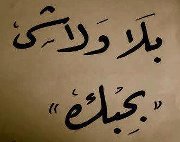 بلا ولا شي
"بحبك"